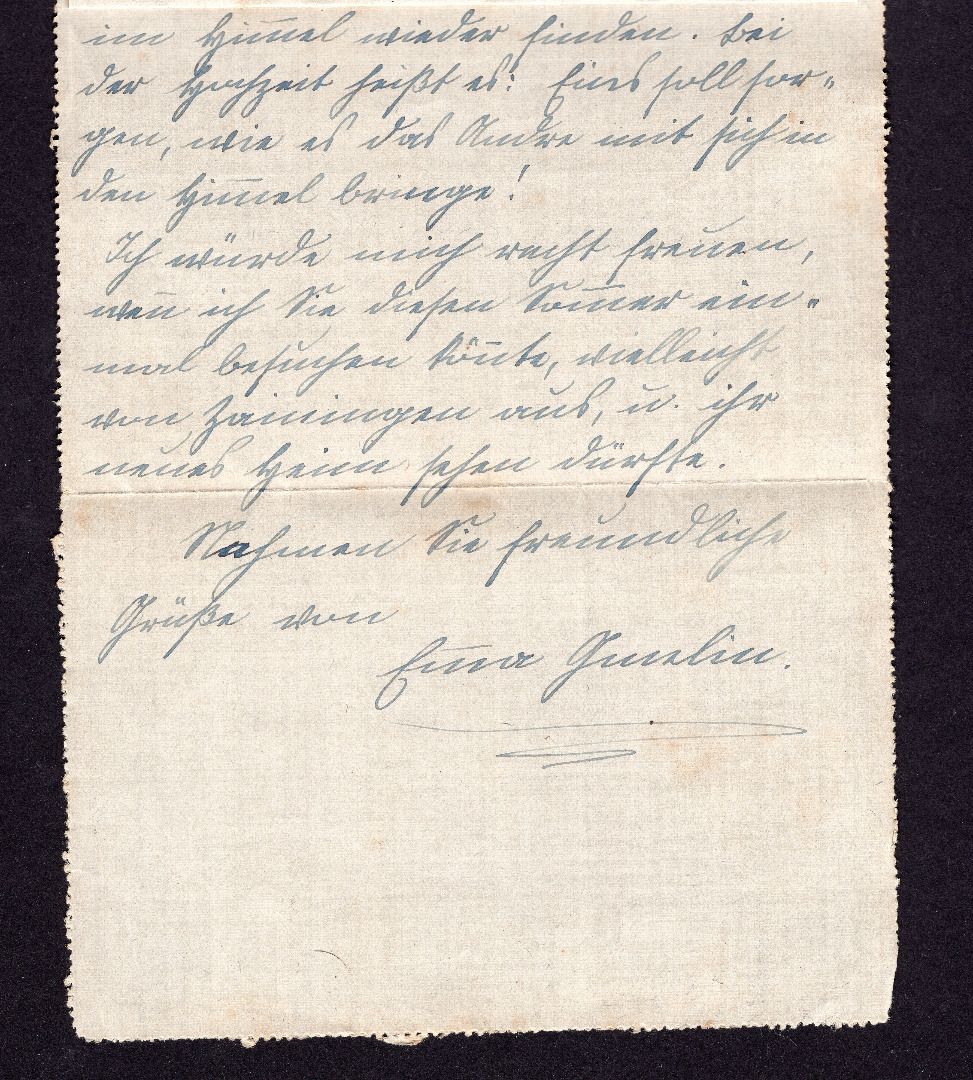 im Him̅el wieder finden. Bei
der Hochzeit heißt es: Eins soll sor-
gen, wie es das Andre mit sich in
den Him̅el bringe!
Ich würde mich recht freuen,
wen̅ ich Sie diesen Som̅er ein-
mal besuchen kön̅te, vielleicht
von Zainingen aus, u. ihr
neues Heim sehen dürfte.
Nehmen Sie freundliche
Grüße von
Em̅a Gmelin.